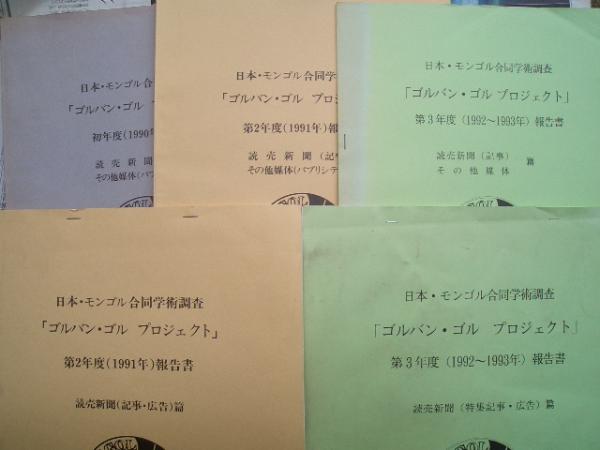 日本・モンゴル合
「ゴルバン・ゴル プ
初年度(1990年
読売新聞
その他媒体(パブ
日本・モンゴル合同学術
「ゴルバン・ゴル プロジ
第2年度(1991年)報
読売新聞(記事
その他媒体(パブリシテ
日本・モンゴル合同学術調査
「ゴルバン・ゴル プロジェクト」
第3年度(1992～1993年)報告書
読売新聞(記事)
その他媒体
篇
日本・モンゴル合同学術調査
「ゴルバン・ゴル プロジェクト」
第2年度(1991年)報告書
読売新聞(記事・広告)篇
日本・モンゴル合同学術調査
「ゴルバン・ゴル プロジェクト」
第3年度(1992～1993年)報告書
読売新聞(特集記事・広告)篇